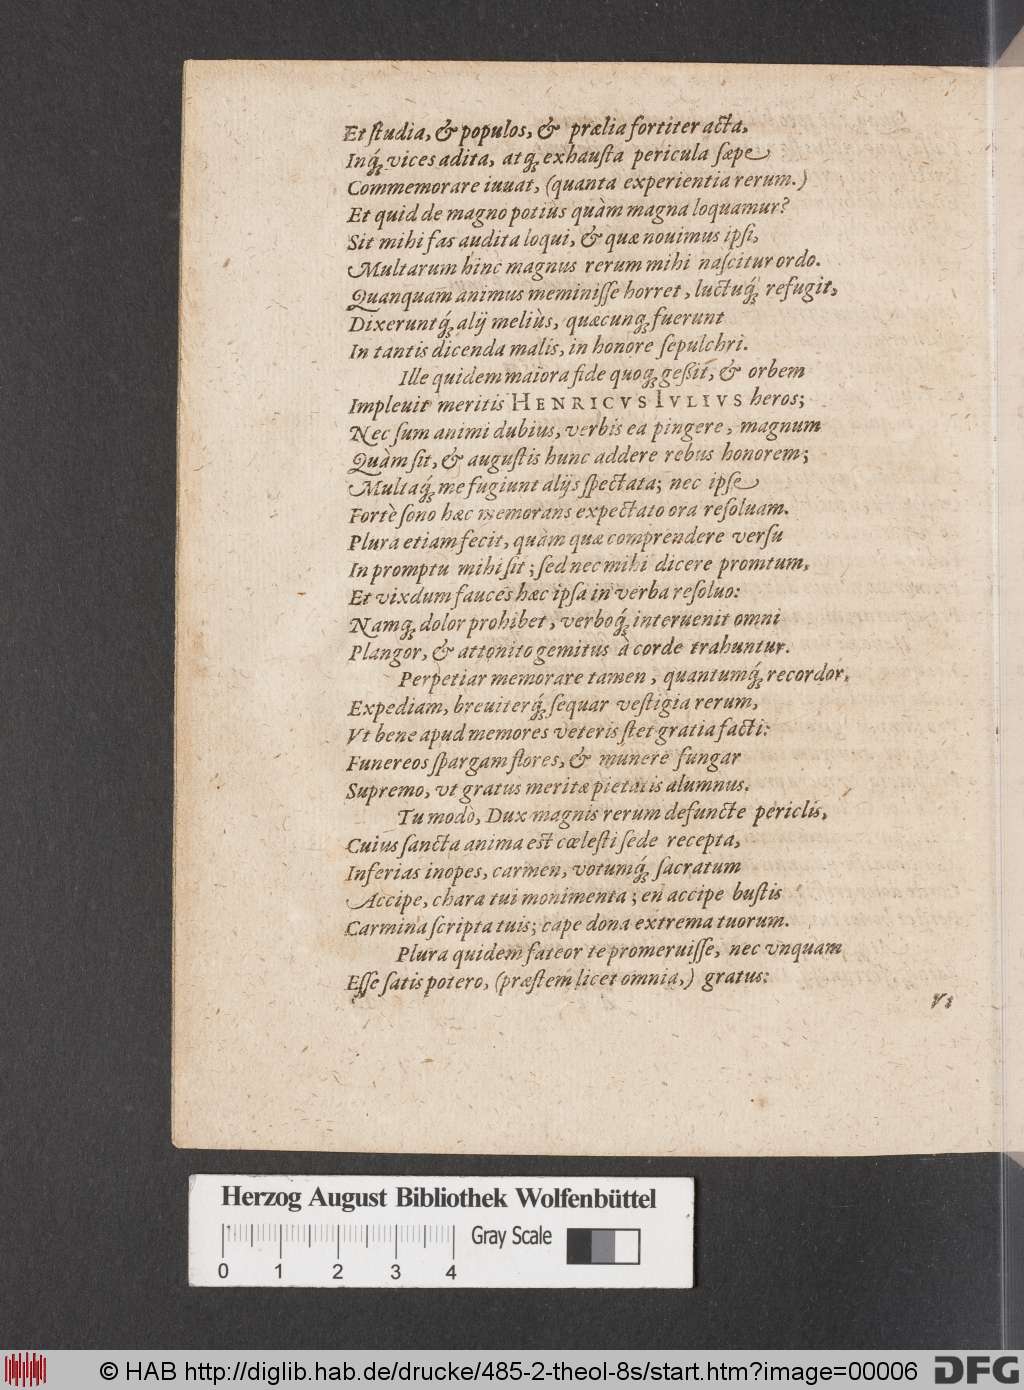 Et ſtudia, & populos, & prælia fortiter acta,
Inq́; vices adita, atq; exhauſta pericula ſæpe
Commemorare iuuat, (quanta experientia rerum.)
Et quid de magno potiùs quàm magna loquamur?
Sit mihi fas audita loqui, & quæ nouimus ipſi,
Multarum hinc magnus rerum mihi naſcitur ordo.
Quanquam animus meminiſſe horret, luctuq́; refugit,
Dixeruntq́; alij meliùs, quæcunq; fuerunt
In tantis dicenda malis, in honore ſepulchri.
Ille quidem maiora fide quoq; geßit, & orbem
Impleuit meritis HENRICVS IVLIVS heros;
Nec ſum animi dubius, verbis ea pingere, magnum
Quàm ſit, & auguſtis hunc addere rebus honorem;
Multaq́; me fugiunt alijs ſpectata; nec ipſe
Fortè ſono hæc memorans expectato ora reſoluam.
Plura etiam fecit, quàm quæ comprendere verſu
In promptu mihi ſit; ſed nec mihi dicere promtum,
Et vixdum fauces hæc ipſa in verba reſoluo:
Namq; dolor prohibet, verboq́; interuenit omni
Plangor, & attonito gemitus à corde trahuntur.
Perpetiar memorare tamen, quantumq́; recordor,
Expediam, breuiterq́; ſequar veſtigia rerum,
Vt bene apud memores veteris ſtet gratia facti:
Funereos ſpargam flores, & munere fungar
Supremo, vt gratus meritæ pietatis alumnus.
Tu modò, Dux magnis rerum defuncte periclis,
Cuius ſancta anima eſt cœleſti ſede recepta,
Inferias inopes, carmen, votumq́; ſacratum
Accipe, chara tui monimenta; en accipe buſtis
Carmina ſcripta tuis; cape dona extrema tuorum.
Plura quidem fateor te promeruiſſe, nec vnquam
Eſſe ſatis potero, (præſtem licet omnia,) gratus:
Vt
Herzog August Bibliothek Wolfenbüttel
Gray Scale
0 1 2 3 4
© HAB http://diglib.hab.de/drucke/485-2-theol-8s/start.htm?image=00006
DFG